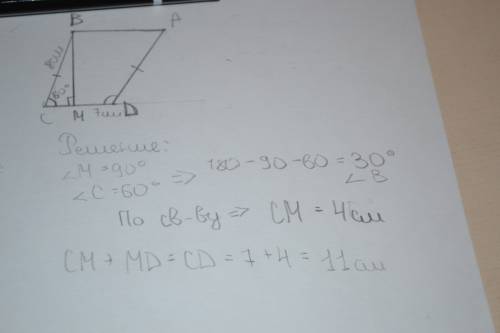 B A
8см
60°
C M 7см D
Решение:
∠M=90°
∠C=60° => 180-90-60=30°
∠B
По св-ву => CM=4см
CM+MD=CD=7+4=11см